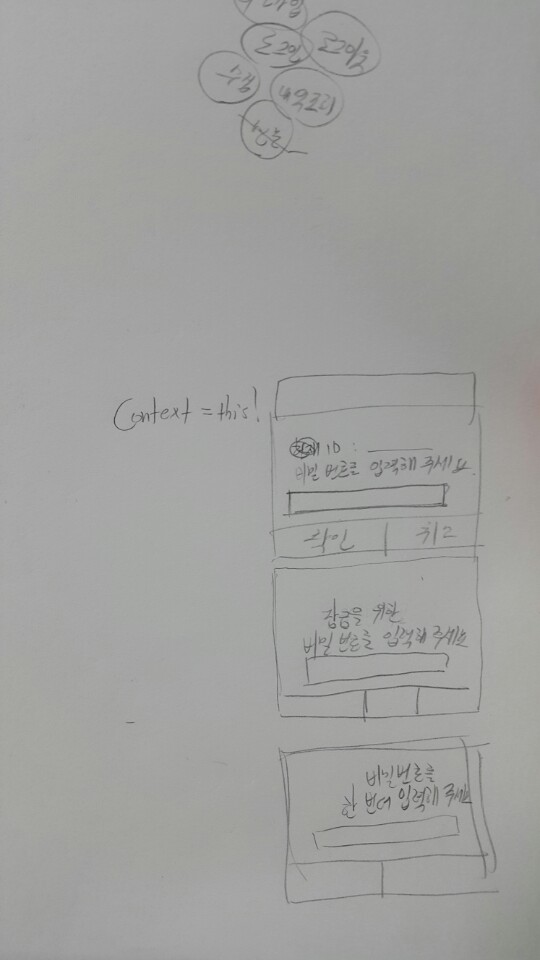 로그인
로그아웃
수정
Context = this!
현재 ID :
비밀 번호를 입력해 주세요.
확인
취소
잠금을 위한
비밀 번호를 입력해 주세요
비밀번호를
한 번더 입력해 주세요